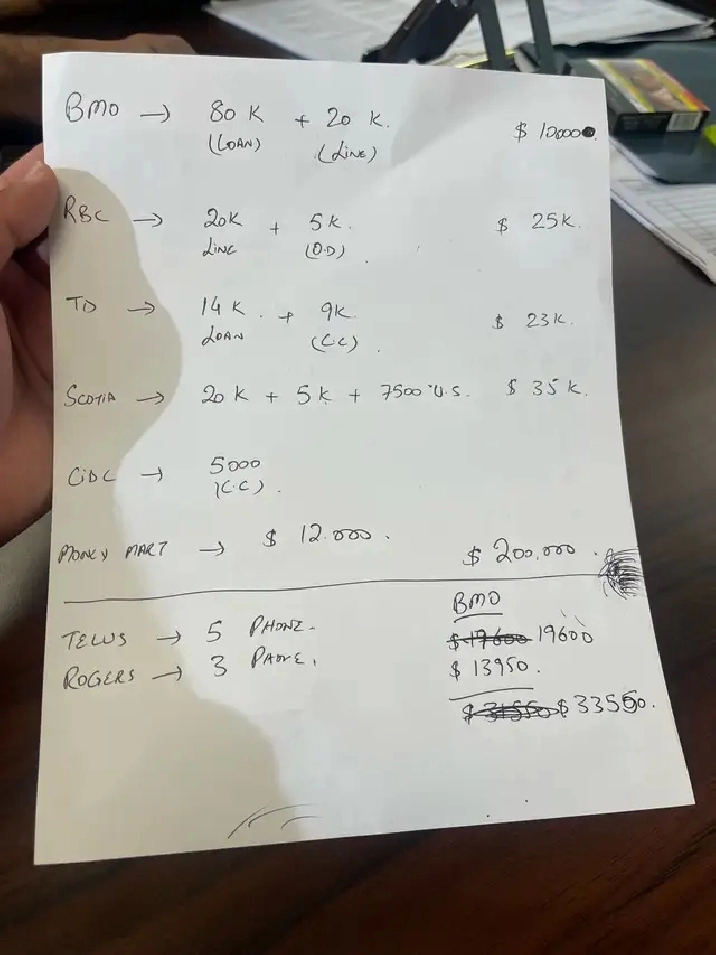 BMO → 80 K + 20 K. $ 10000
(LOAN) (LINE)
RBC → 20K + 5K. $ 25K.
LINE (O.D)
TD → 14K. + 9K. $ 23K.
LOAN (C.C)
SCOTIA → 20K + 5K + 7500 U.S. $ 35K.
CIDC → 5000
(C.C)
MONEY MART → $ 12.000. $ 200,000.
BMO
TELUS → 5 PHONE. 19600
ROGERS → 3 PHONE. $ 13950.
$ 33550.